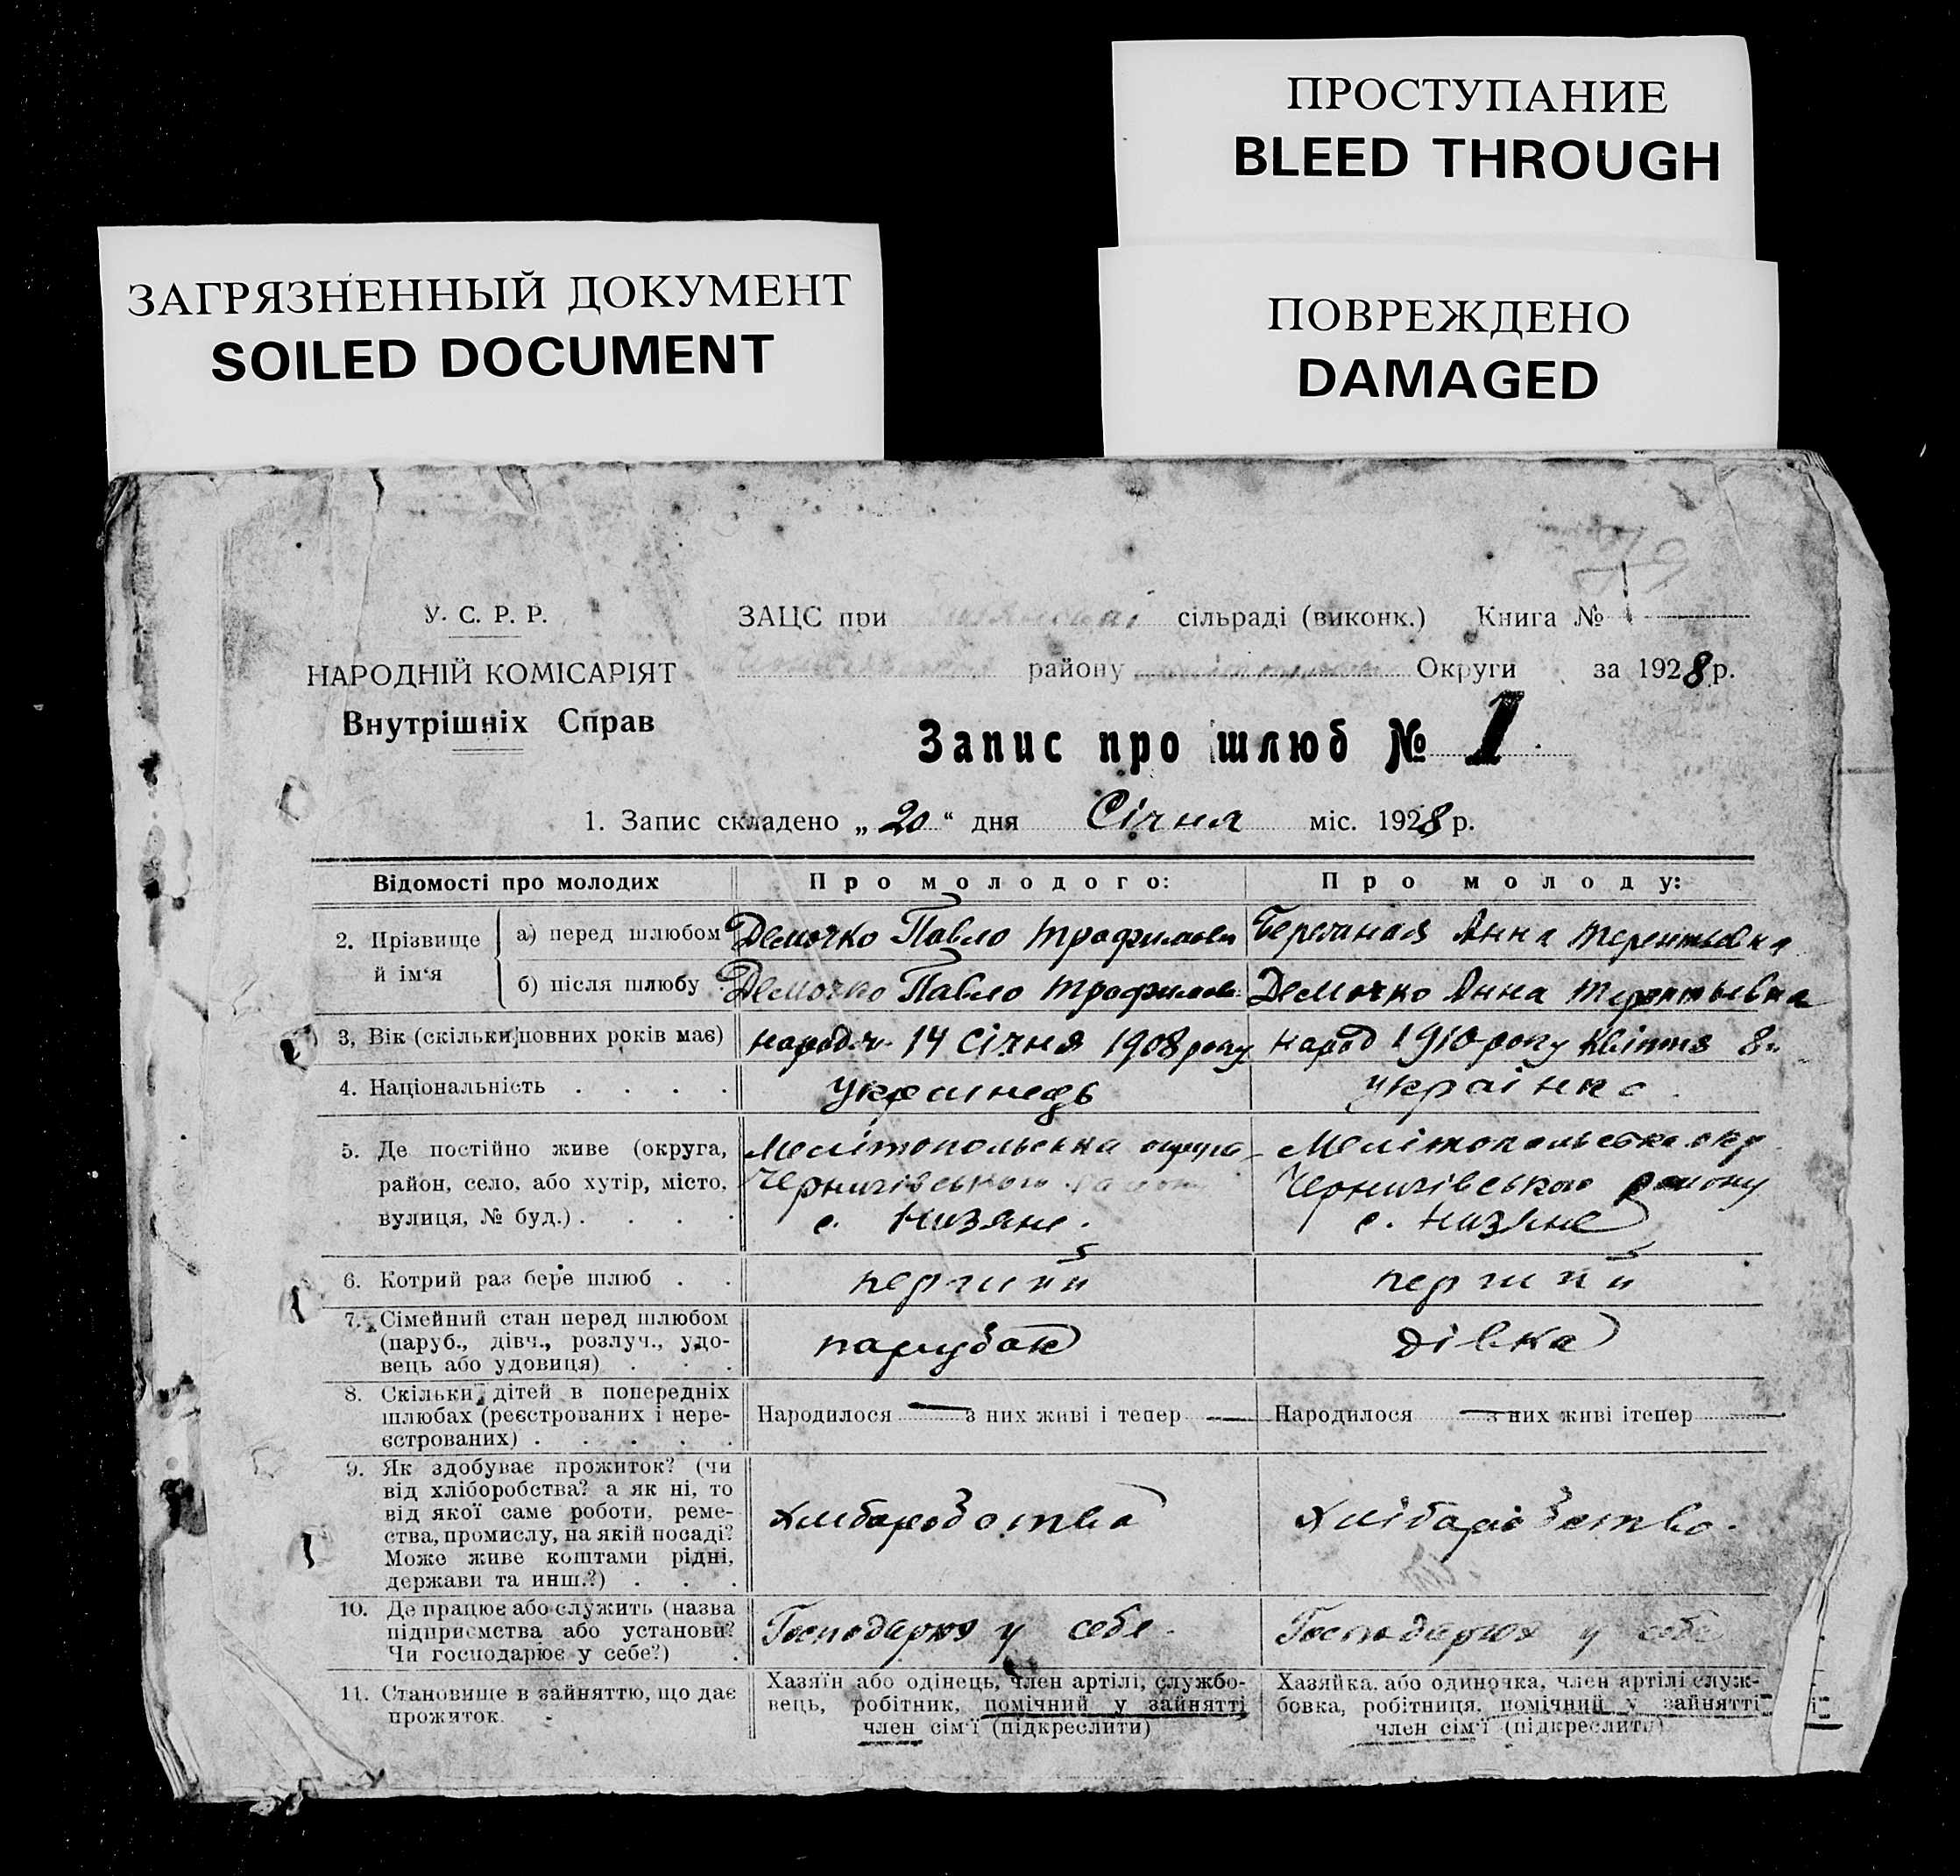 ПРОСТУПАНИЕ
BLEED THROUGH
ЗАГРЯЗНЕННЫЙ ДОКУМЕНТ
SOILED DOCUMENT
ПОВРЕЖДЕНО
DAMAGED
У. С. Р. Р.
НАРОДНІЙ КОМІСАРІЯТ
Внутрішніх Справ
ЗАЦС при сільраді (виконк.) Книга №
району Округи за 1928 р.
Запис про шлюб № 1
1. Запис складено „20“ дня Січня міс. 1928 р.
Відомості про молодих Про молодого: Про молоду:
2. Прізвище й ім‘я
а) перед шлюбом Демочко Павло Анна Терентьевна
б) після шлюбу Демочко Павло Демочко Анна
3, Вік (скільки повних років має) 14 Січня 1908 року народ 1910 року 8
4. Національність . . . . Украинець украінка
5. Де постійно живе (округа, Мелітопольська округа Мелітопольська окр
район, село, або хутір, місто, Чернигівського району Чернигівського району
вулиця, № буд.) . . . . с. Низяне. с. Низяне
6. Котрий раз бере шлюб . . перший перший
7. Сімейний стан перед шлюбом
(паруб., дівч., розлуч., удо-
вець або удовиця) . . . парубок дівка
8. Скільки дітей в попередніх
шлюбах (реєстрованих і нере-
єстрованих) . . . . . Народилося — з них живі і тепер — Народилося — з них живі ітепер —
9. Як здобуває прожиток? (чи
від хліборобства? а як ні, то
від якої саме роботи, реме-
ства, промислу, на якій посаді?
Може живе коштами рідні,
держави та инш.?) . . .
10. Де працює або служить (назва
підприємства або установи?
Чи господарює у себе?) . Господарюя у себе Господарюя у себе
11. Становище в зайняттю, що дає
прожиток.
Хазяїн або одінець, член артілі, службо-
вець, робітник, помічний у зайнятті
член сім‘ї (підкреслити)
Хазяйка, або одиночка, член артілі служ-
бовка, робітниця, помічний у зайнятті
член сім‘ї (підкреслити)